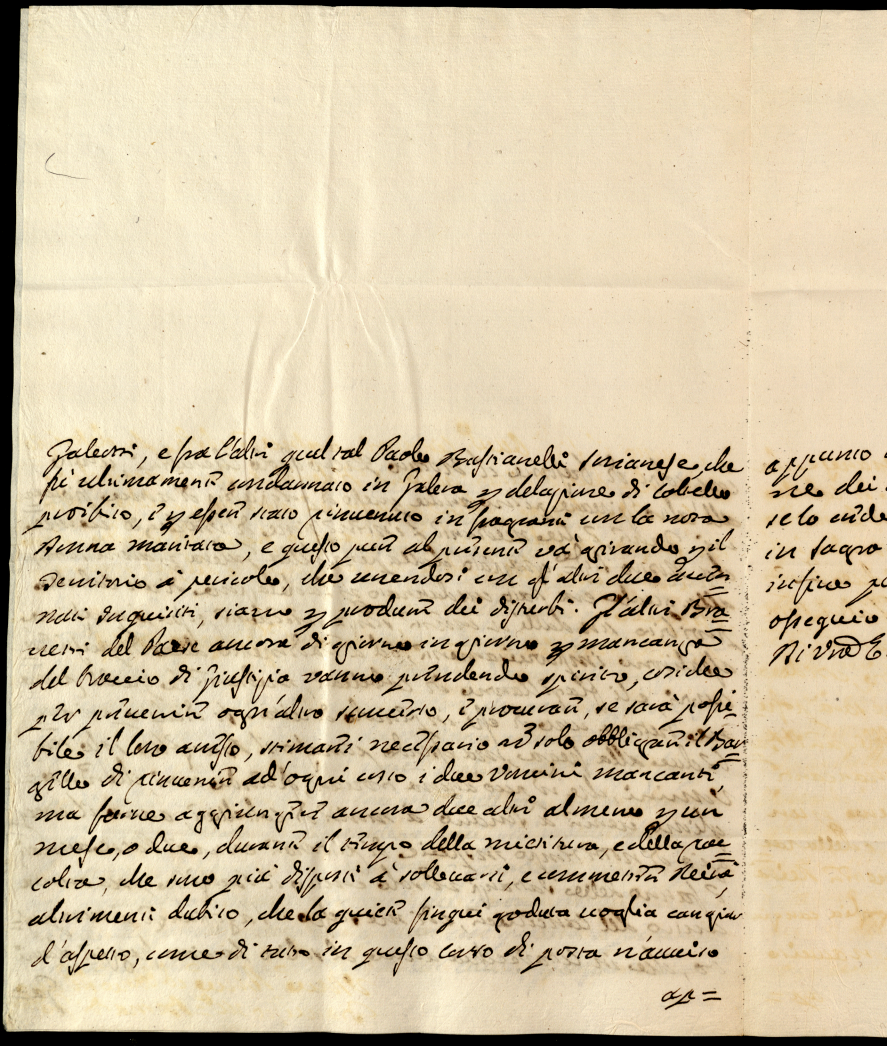 Galeotti, e fra l'altri quel tal Paolo Bastianelli Sorianese, che
fù ultimamente condannato in Galera p delazione di Coltello
proibito, e p essere stato rinvenuto in fragranti con la nota
Donna maritata, e questo pure al presente và girando p il
Territorio à pericolo, che unendosi con gl'altri due
nati Inquisiti, siano p produrre dei disturbi. Gl'altri Bra=
del Paese ancora di giorno in giorno p mancanza
del braccio di Giustizia vanno prendendo spirito, cosiche
per prevenire ogni altro sconcerto, e procurare, se sarà possi=
bile il loro arresto, stimarei necessario nō solo obbligare il Bar=
gello di rinvenire ad'ogni costo i due Uomini mancanti,
ma farne aggiungere ancora due altri almeno p un
mese, o due, durante il tempo della mietitura, e della rac=
colta, che sono più disposti à sollevarsi, e commettere
altrimenti dubito, che la quiete fin qui goduta voglia cangiar
d'aspetto, come di tutto in questo corso di posta n'avviso
ap=
appunto
ne dei
se lo
in sagro
infine
ossequio
Di V